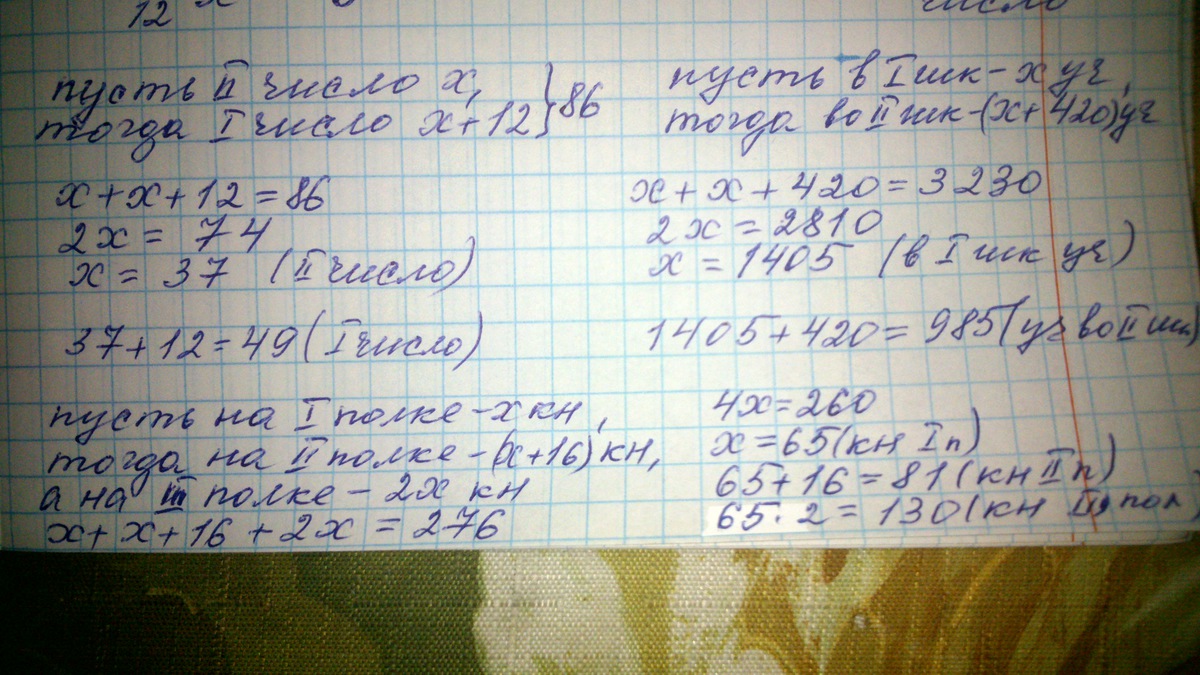 12 x
число
пусть II число x,
тогда I число x+12 } 86
x+x+12=86
2x = 74
x = 37 (II число)
37+12=49 (I число)
пусть в I шк - x уч,
тогда во II шк - (x+420) уч
x+x+420=3230
2x=2810
x=1405 (в I шк уч)
1405+420=985 (уч во II шк)
пусть на I полке - x кн,
тогда на II полке - (x+16) кн,
а на III полке - 2x кн
x+x+16+2x=276
4x=260
x=65 (кн I п)
65+16=81 (кн II п)
65·2=130 (кн III пол